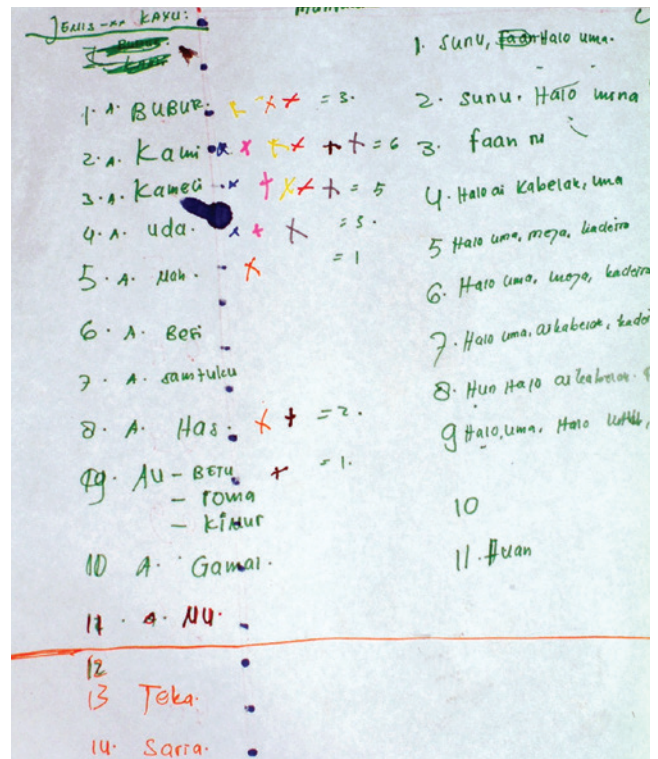 JENIS-AN KAYU:
1. A. BUBUR. = 3.
2. A. Kami = 6
3. A. Kameli = 5
4. A. uda. = 3.
5. A. Noh. = 1
6. A. Besi
7. A. samtuku
8. A. Has. = 2.
9. AU - BETU = 1.
- roma
- KINUR
10 A. Gamal.
11. A. NU.
12
13 Teka.
14. Sarria.
1. Sunu, Halo uma.
2. Sunu. Halo
3. faan
4. Halo ai Kabelak, uma
5 Halo uma, meza, kadeira
6. Halo uma, meza, kadeira
7. Halo uma, aikabelak, kadei
8. Hun Halo ai kabelak.
9 Halo, uma. Halo
10
11. Huan